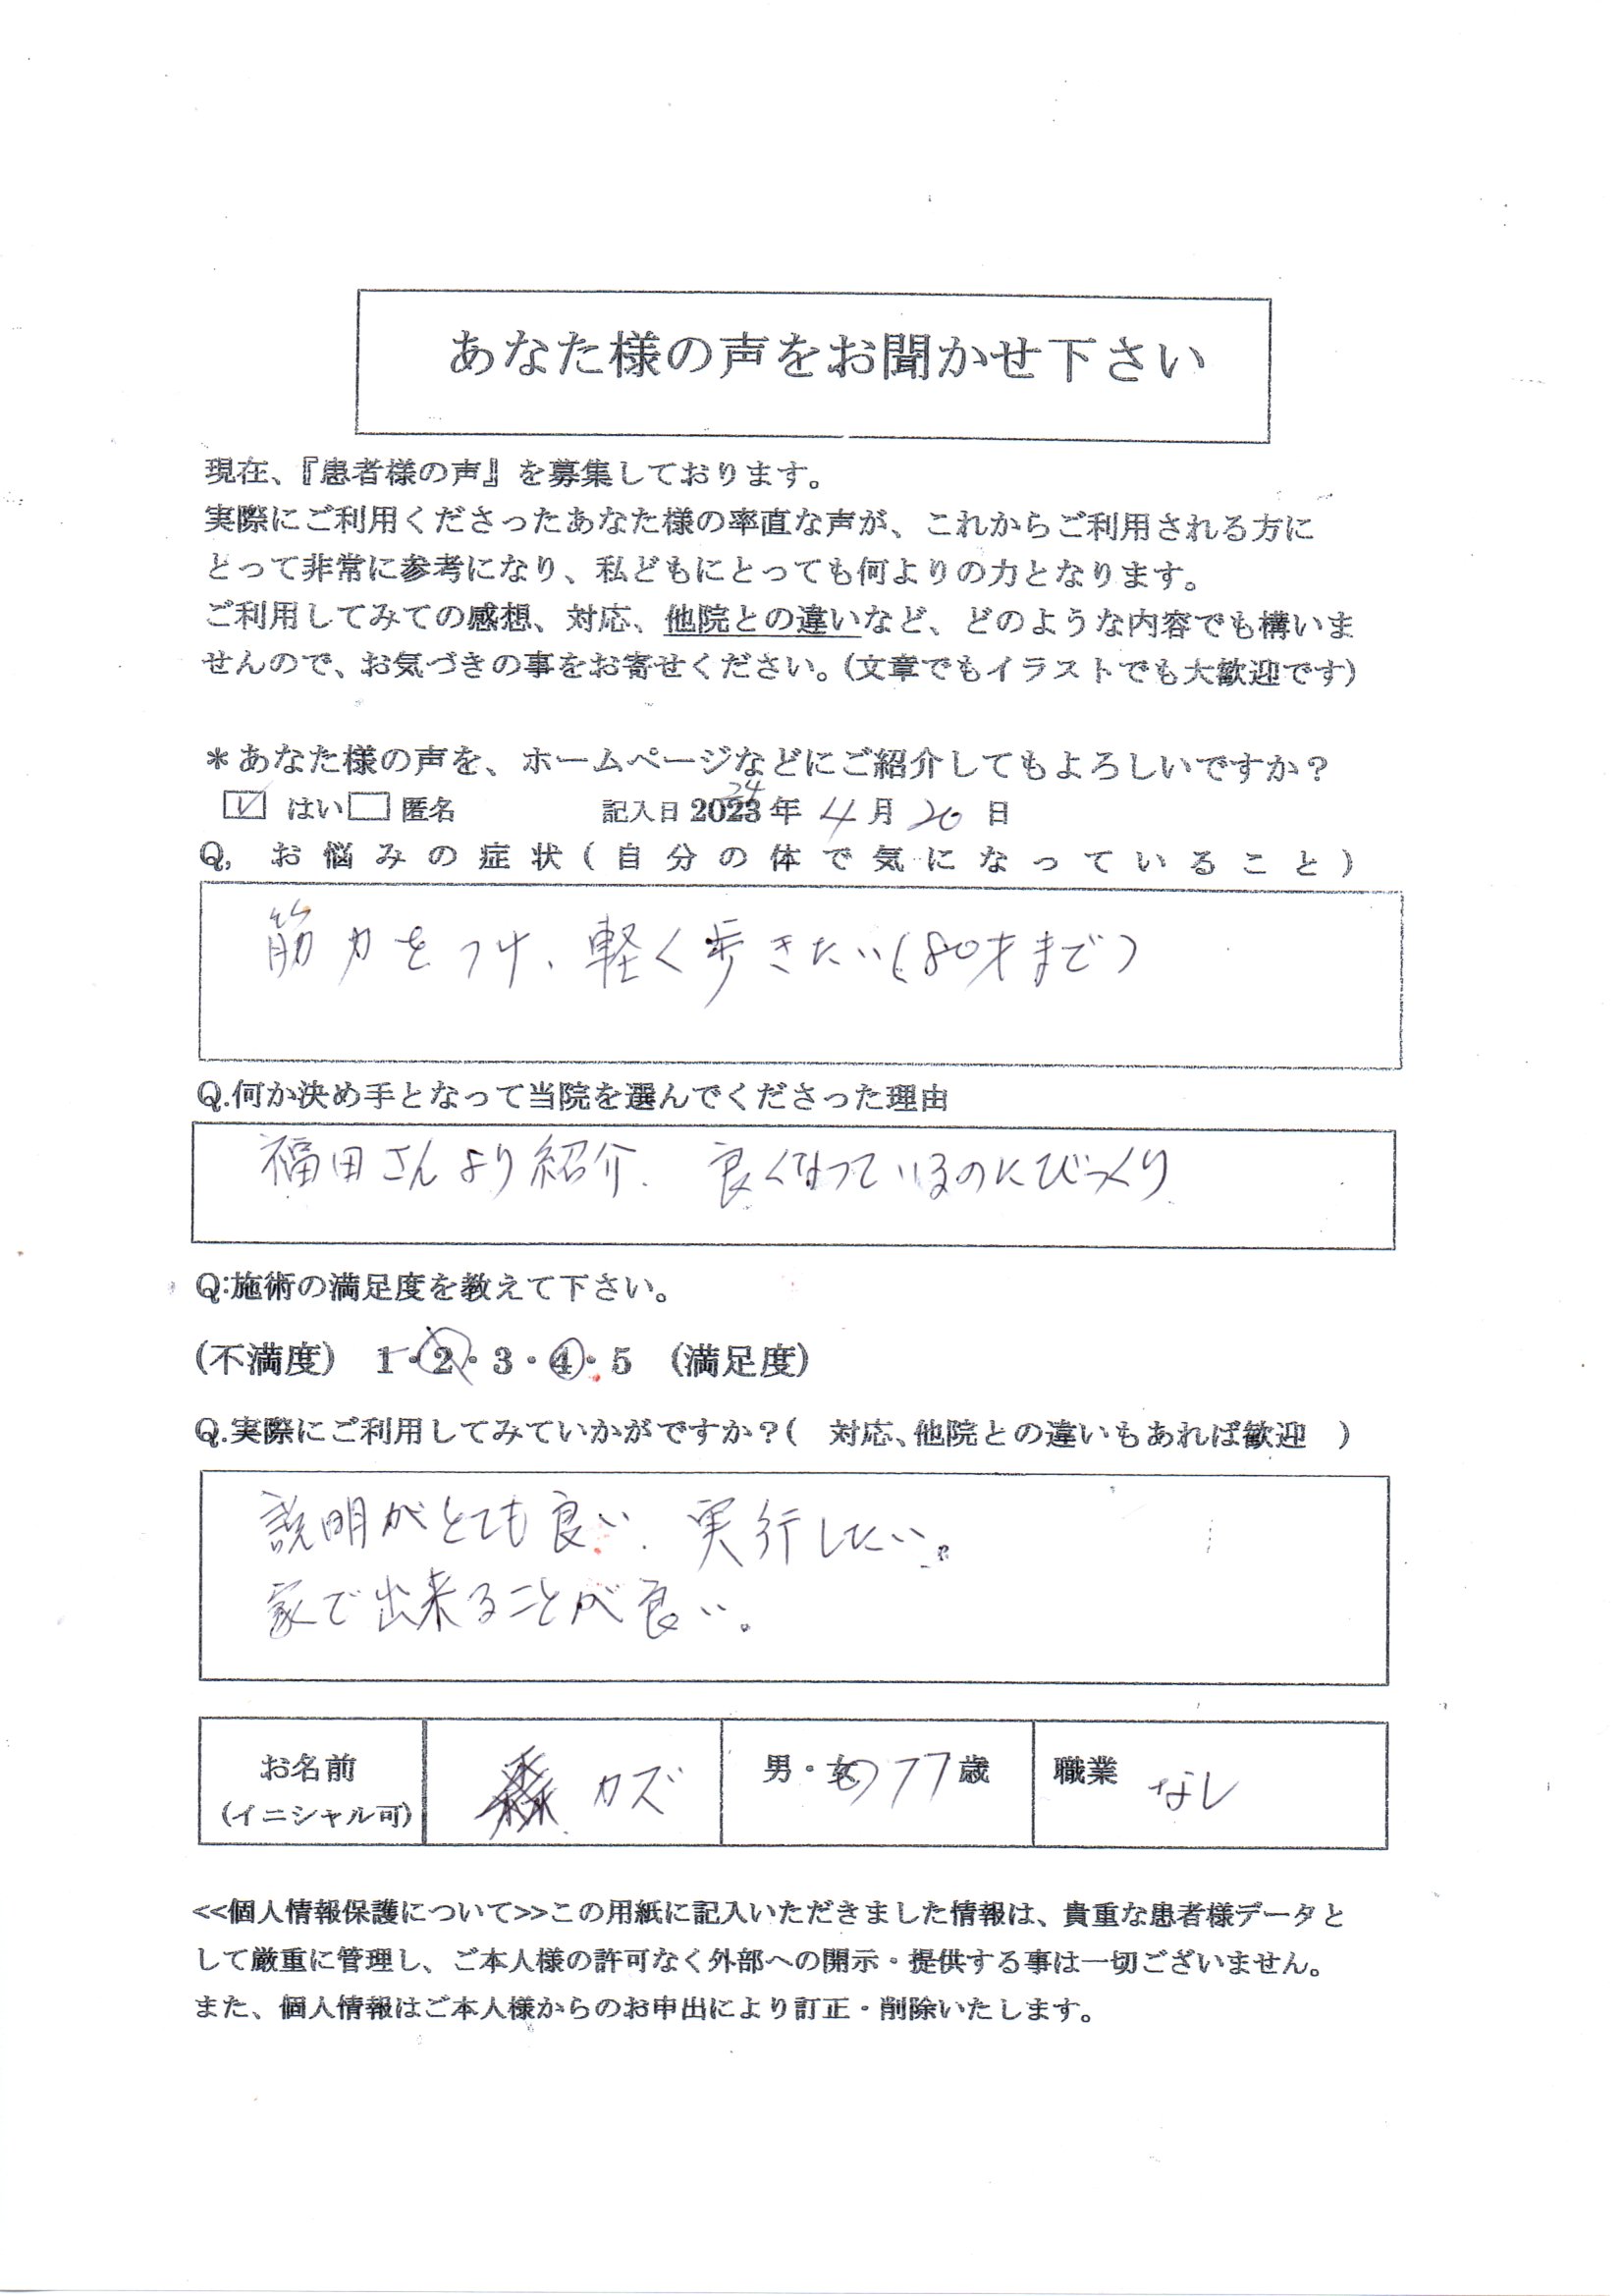 あなた様の声をお聞かせ下さい
現在、『患者様の声』を募集しております。
実際にご利用くださったあなた様の率直な声が、これからご利用される方に
とって非常に参考になり、私どもにとっても何よりの力となります。
ご利用してみての感想、対応、他院との違いなど、どのような内容でも構いま
せんので、お気づきの事をお寄せください。(文章でもイラストでも大歓迎です)
＊あなた様の声を、ホームページなどにご紹介してもよろしいですか？
☑ はい□ 匿名 記入日 2023 24 年 4 月 20 日
Q, お悩みの症状(自分の体で気になっていること)
筋力をつけ、軽く歩きたい(80才まで)
Q.何か決め手となって当院を選んでくださった理由
福田さんより紹介. 良くなっているのにびっくり
Q:施術の満足度を教えて下さい。
(不満度) 1・2・3・4・5 (満足度)
Q.実際にご利用してみていかがですか？( 対応、他院との違いもあれば歓迎 )
説明がとても良い. 実行したい。
家で出来ることが良い。
お名前 カズ 男・女 77歳 職業 なし
(イニシャル可)
<<個人情報保護について>>この用紙に記入いただきました情報は、貴重な患者様データと
して厳重に管理し、ご本人様の許可なく外部への開示・提供する事は一切ございません。
また、個人情報はご本人様からのお申出により訂正・削除いたします。